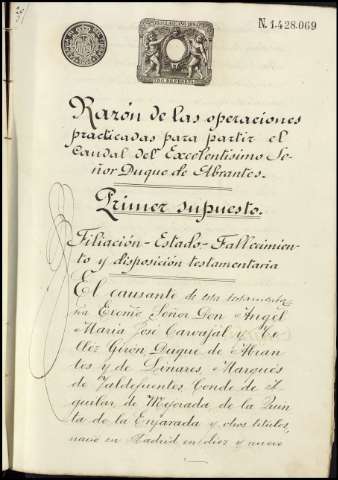 N. 1.428.069
Razón de las operaciones
practicadas para partir el
caudal del Excelentisimo Se-
ñor Duque de Abrantes.
Primer supuesto.
Filiación - Estado - Fallecimien-
to y disposición testamentaria
El causante de esta testamenta-
ria Excmo. Señor Don Angel
Maria José Carvajal y Te-
llez Girón, Duque de Abran-
tes y de Linares, Marqués
de Valdefuentes, Conde de A-
guilar, de Mejorada, de la Quin-
ta de la Enjarada y otros titulos,
nació en Madrid en diez y nueve